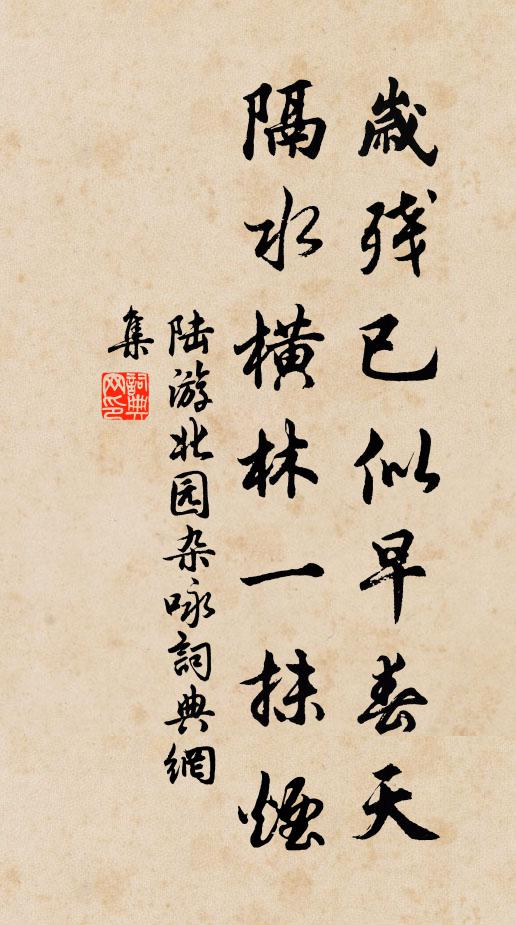 歲残已似早春天
隔水横林一抹煙
陆游北园杂咏詞典網
集
詞典
网印